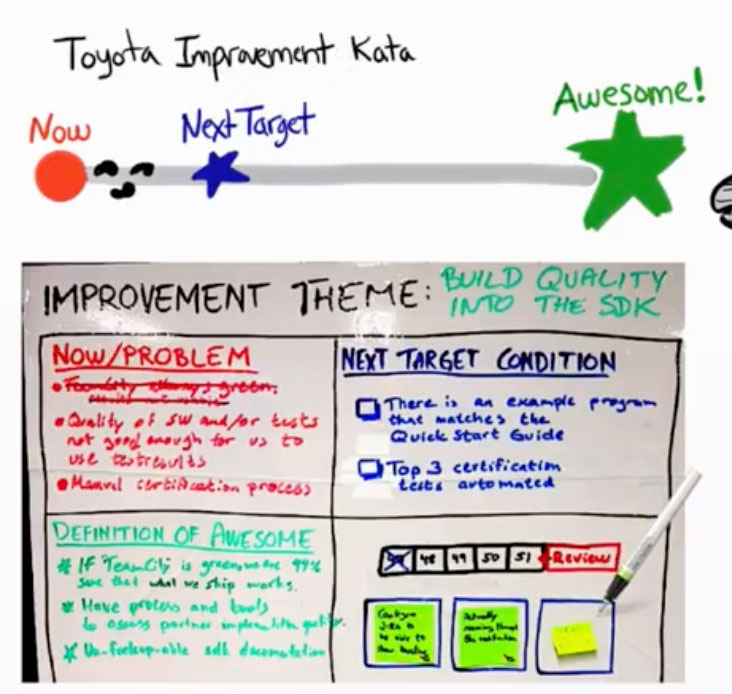 Toyota Improvement Kata
Awesome!
Now
Next Target
IMPROVEMENT THEME: BUILD QUALITY
INTO THE SDK
NOW/PROBLEM
always green.
Quality of SW and/or tests
not good enough for us to
use testresults
Manual certification process
NEXT TARGET CONDITION
There is an example program
that matches the
Quick Start Guide
Top 3 certification
tests automated
DEFINITION OF AWESOME
If "TeamCity" is green we are 99%
sure that what we ship works.
Have process and tools
to assess partner implementation quality.
sdk documentation
48 49 50 51 Review
Configure
be able to
Actually
running through
the